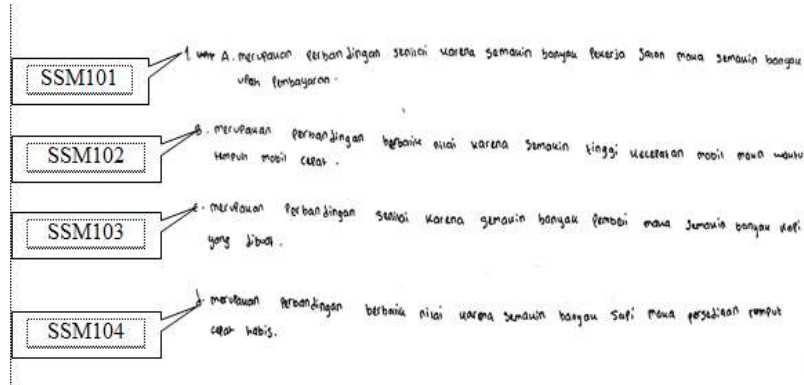 SSM101
1. A. merupakan perbandingan senilai karena semakin banyak pekerja salon maka semakin banyak
upah pembayaran.
SSM102
B. merupakan perbandingan berbalik nilai karena semakin tinggi kecepatan mobil maka waktu
tempuh mobil cepat.
SSM103
c. merupakan perbandingan senilai karena semakin banyak pembeli maka semakin banyak kopi
yang dibuat.
SSM104
d. merupakan perbandingan berbalik nilai karena semakin banyak sapi maka persediaan rumput
cepat habis.